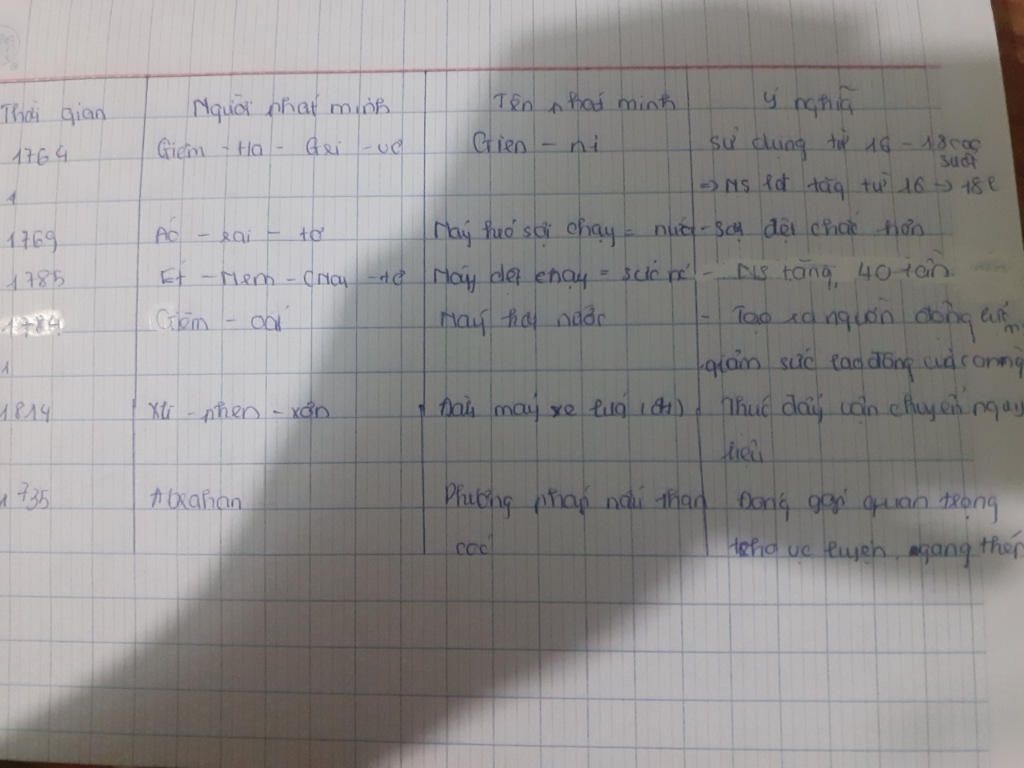 Thời gian Người phát minh Tên phát minh Ý nghĩa
1764 Giêm - Ha - Gri - vơ Gien - ni sử dụng từ 16 - 18 cọc
suốt
⇒ NS lđ tăng từ 16 → 18
1769 Ác - rai - tơ Máy kéo sợi chạy = nước - sợi dệt chắc hơn
1785 Ét - Mơm - Crai - tơ Máy dệt chạy = sức - NS tăng 40 lần
1784 Giêm - oát Máy hơi nước - Tạo ra nguồn động lực
giảm sức lao động của con
1814 Xti - phen - xơn Đầu máy xe lửa Thúc đẩy vận chuyển
1735 Abraham Phương pháp nấu than Đóng góp quan trọng
cốc luyện gang thép